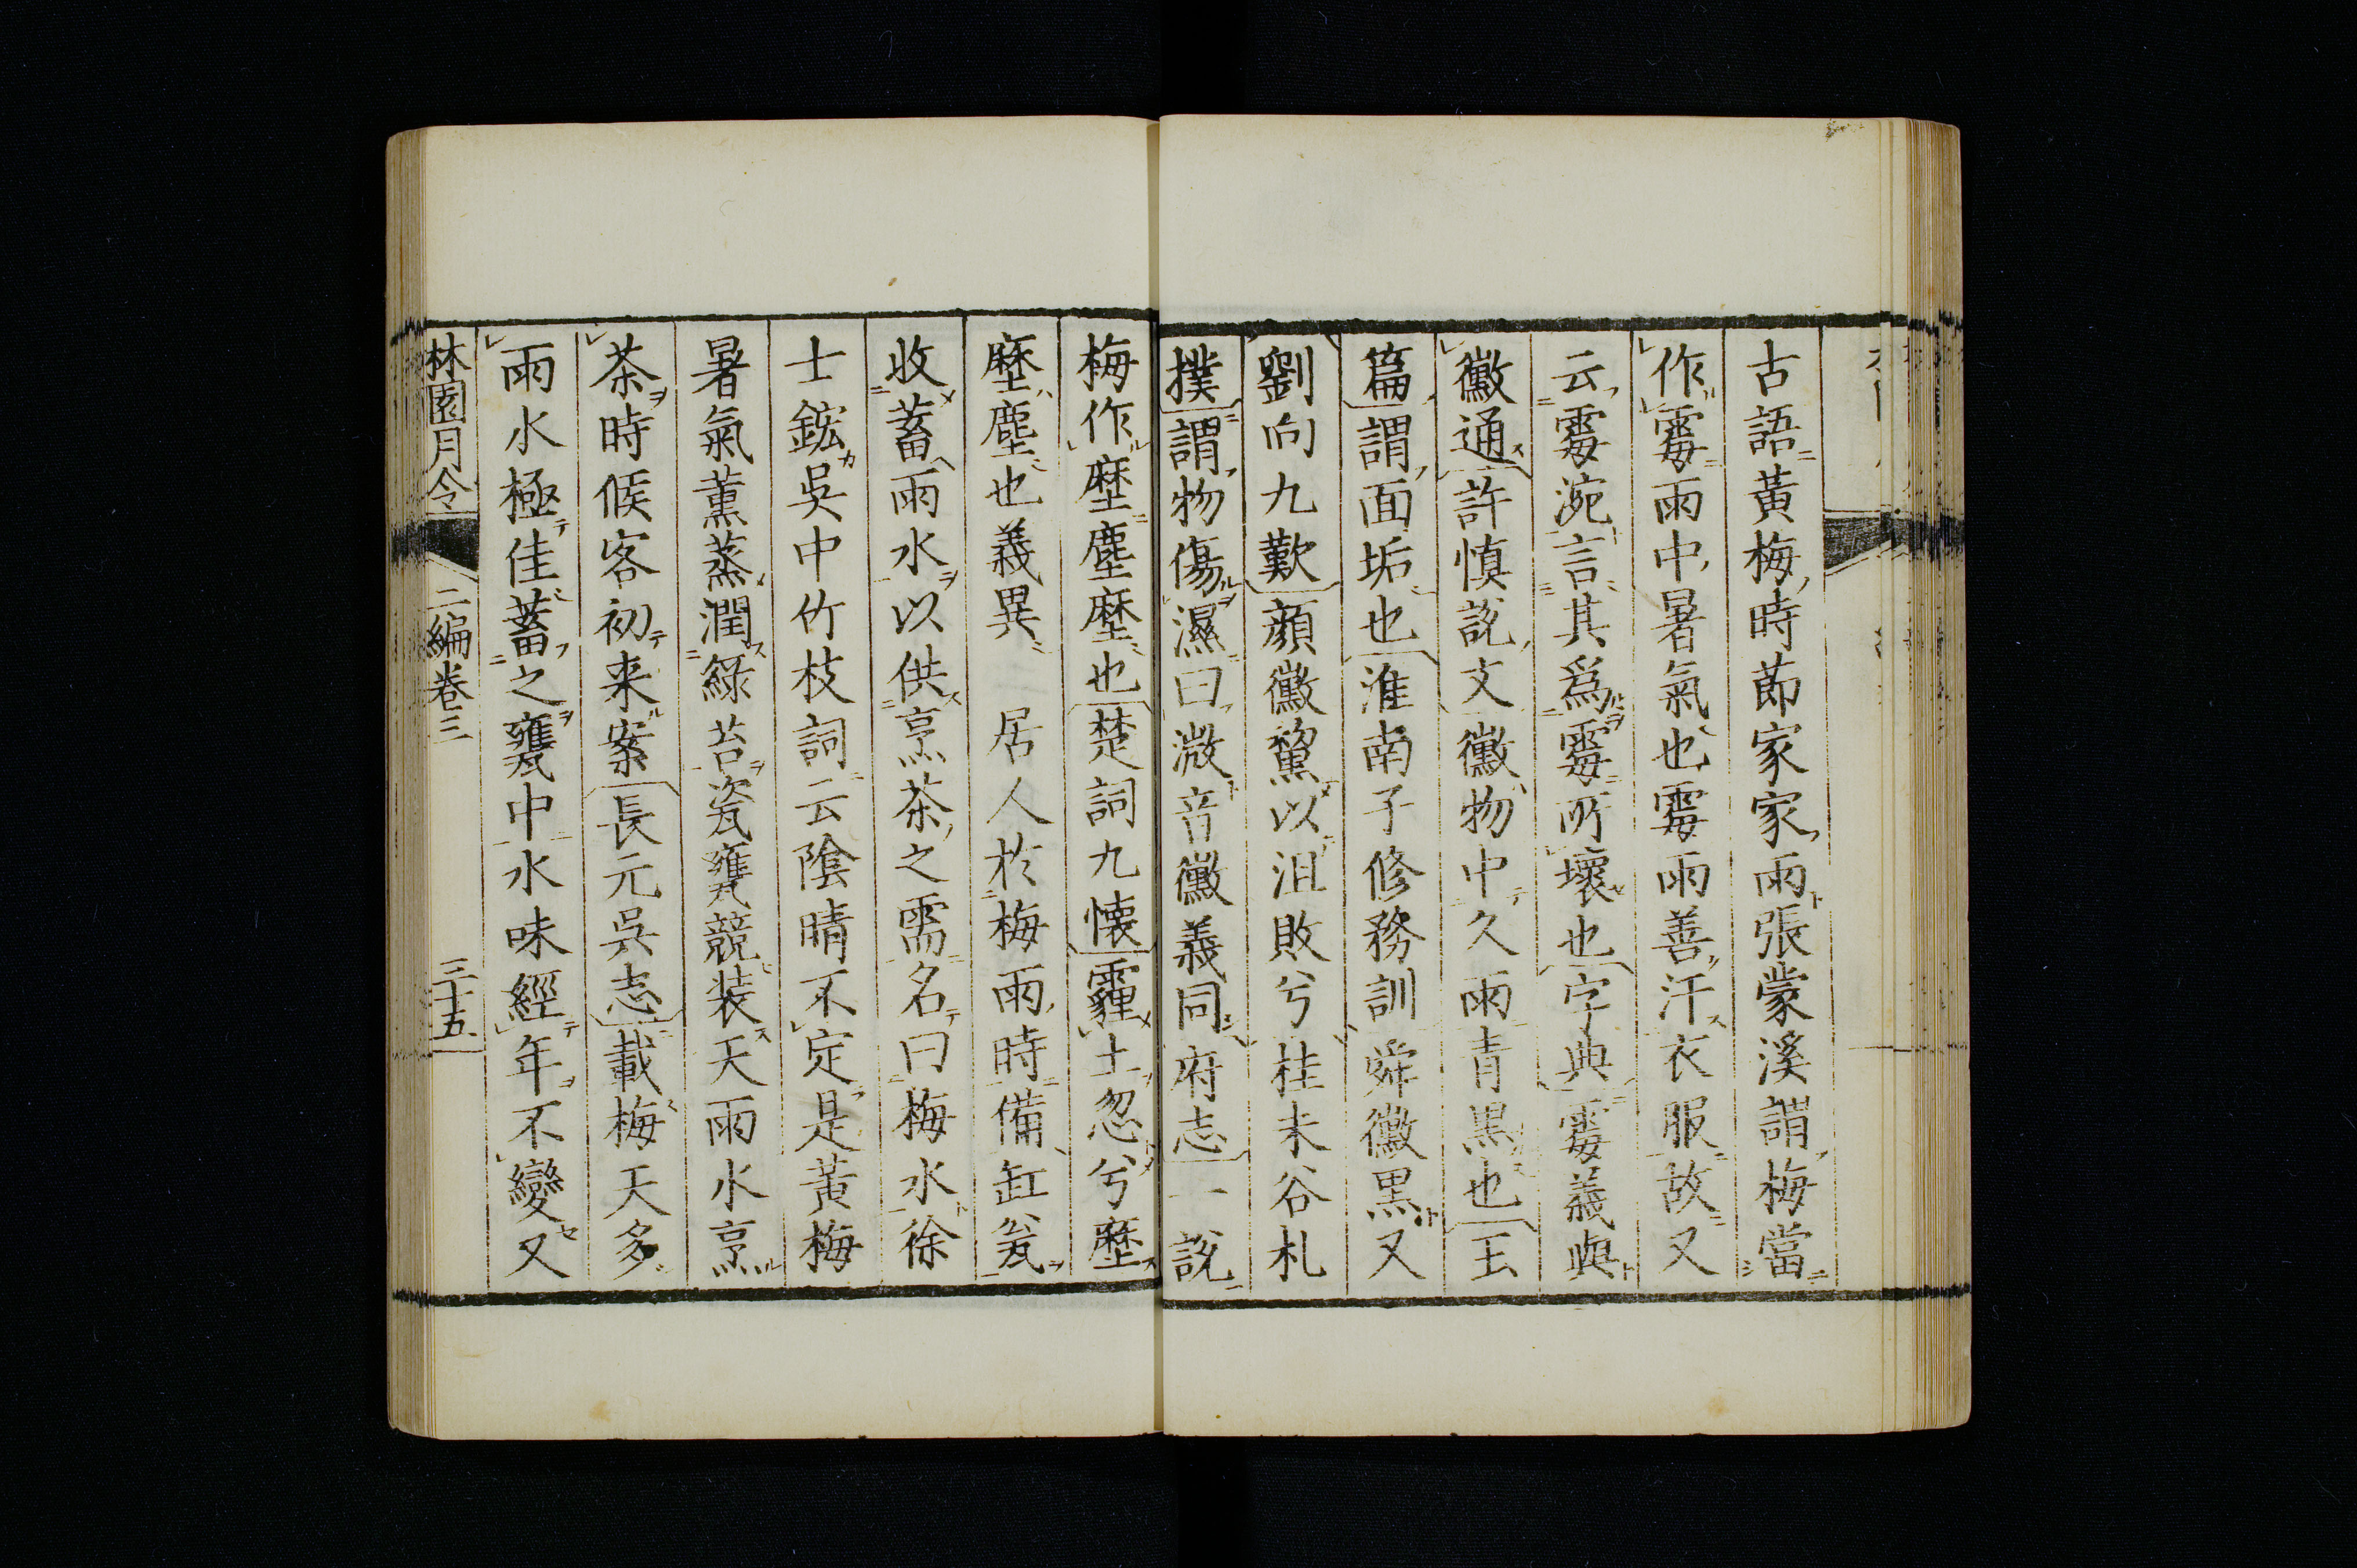 古語黃梅時節家家雨張蒙溪謂梅當
作霉雨中暑氣也霉雨善汙衣服故又
云霉涴言其爲霉所壞也字典霉義與
黴通許慎説文黴物中久雨青黑也玉
篇謂面垢也淮南子修務訓舜黴黑又
劉向九歎顏黴黧以沮敗兮桂未谷札
撲謂物傷濕曰溦音黴義同府志一説
梅作𡏖塵𡏖也楚詞九懷霾土忽兮𡏖
𡏖塵也義異　居人於梅雨時備缸瓮
收蓄雨水以供烹茶之需名曰梅水徐
士鋐吳中竹枝詞云陰晴不定是黃梅
暑氣薰蒸潤綠苔瓷甕競装天雨水烹
茶時候客初来案長元吳志載梅天多
雨水極佳蓄之甕中水味經年不變又
林園月令　二編卷三　三十五